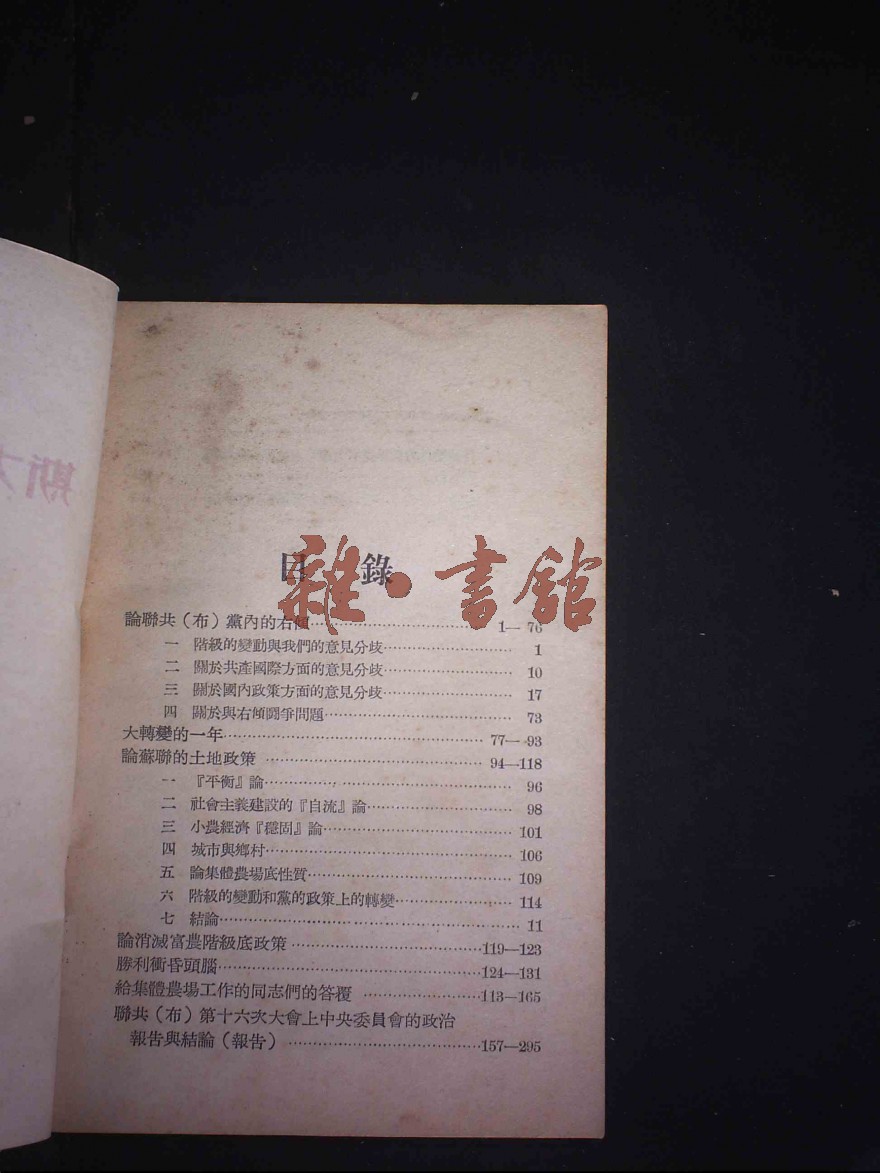 目錄
雜·書館
論聯共(布)黨內的右傾 1—76
一 階級的變動與我們的意見分歧 1
二 關於共產國際方面的意見分歧 10
三 關於國內政策方面的意見分歧 17
四 關於與右傾鬭爭問題 73
大轉變的一年 77—93
論蘇聯的土地政策 94—118
一 『平衡』論 96
二 社會主義建設的『自流』論 98
三 小農經濟『穩固』論 101
四 城市與鄉村 106
五 論集體農場底性質 109
六 階級的變動和黨的政策上的轉變 114
七 結論 11
論消滅富農階級底政策 119—123
勝利衝昏頭腦 124—131
給集體農場工作的同志們的答覆 113—165
聯共(布)第十六次大會上中央委員會的政治
報告與結論(報告) 157—295